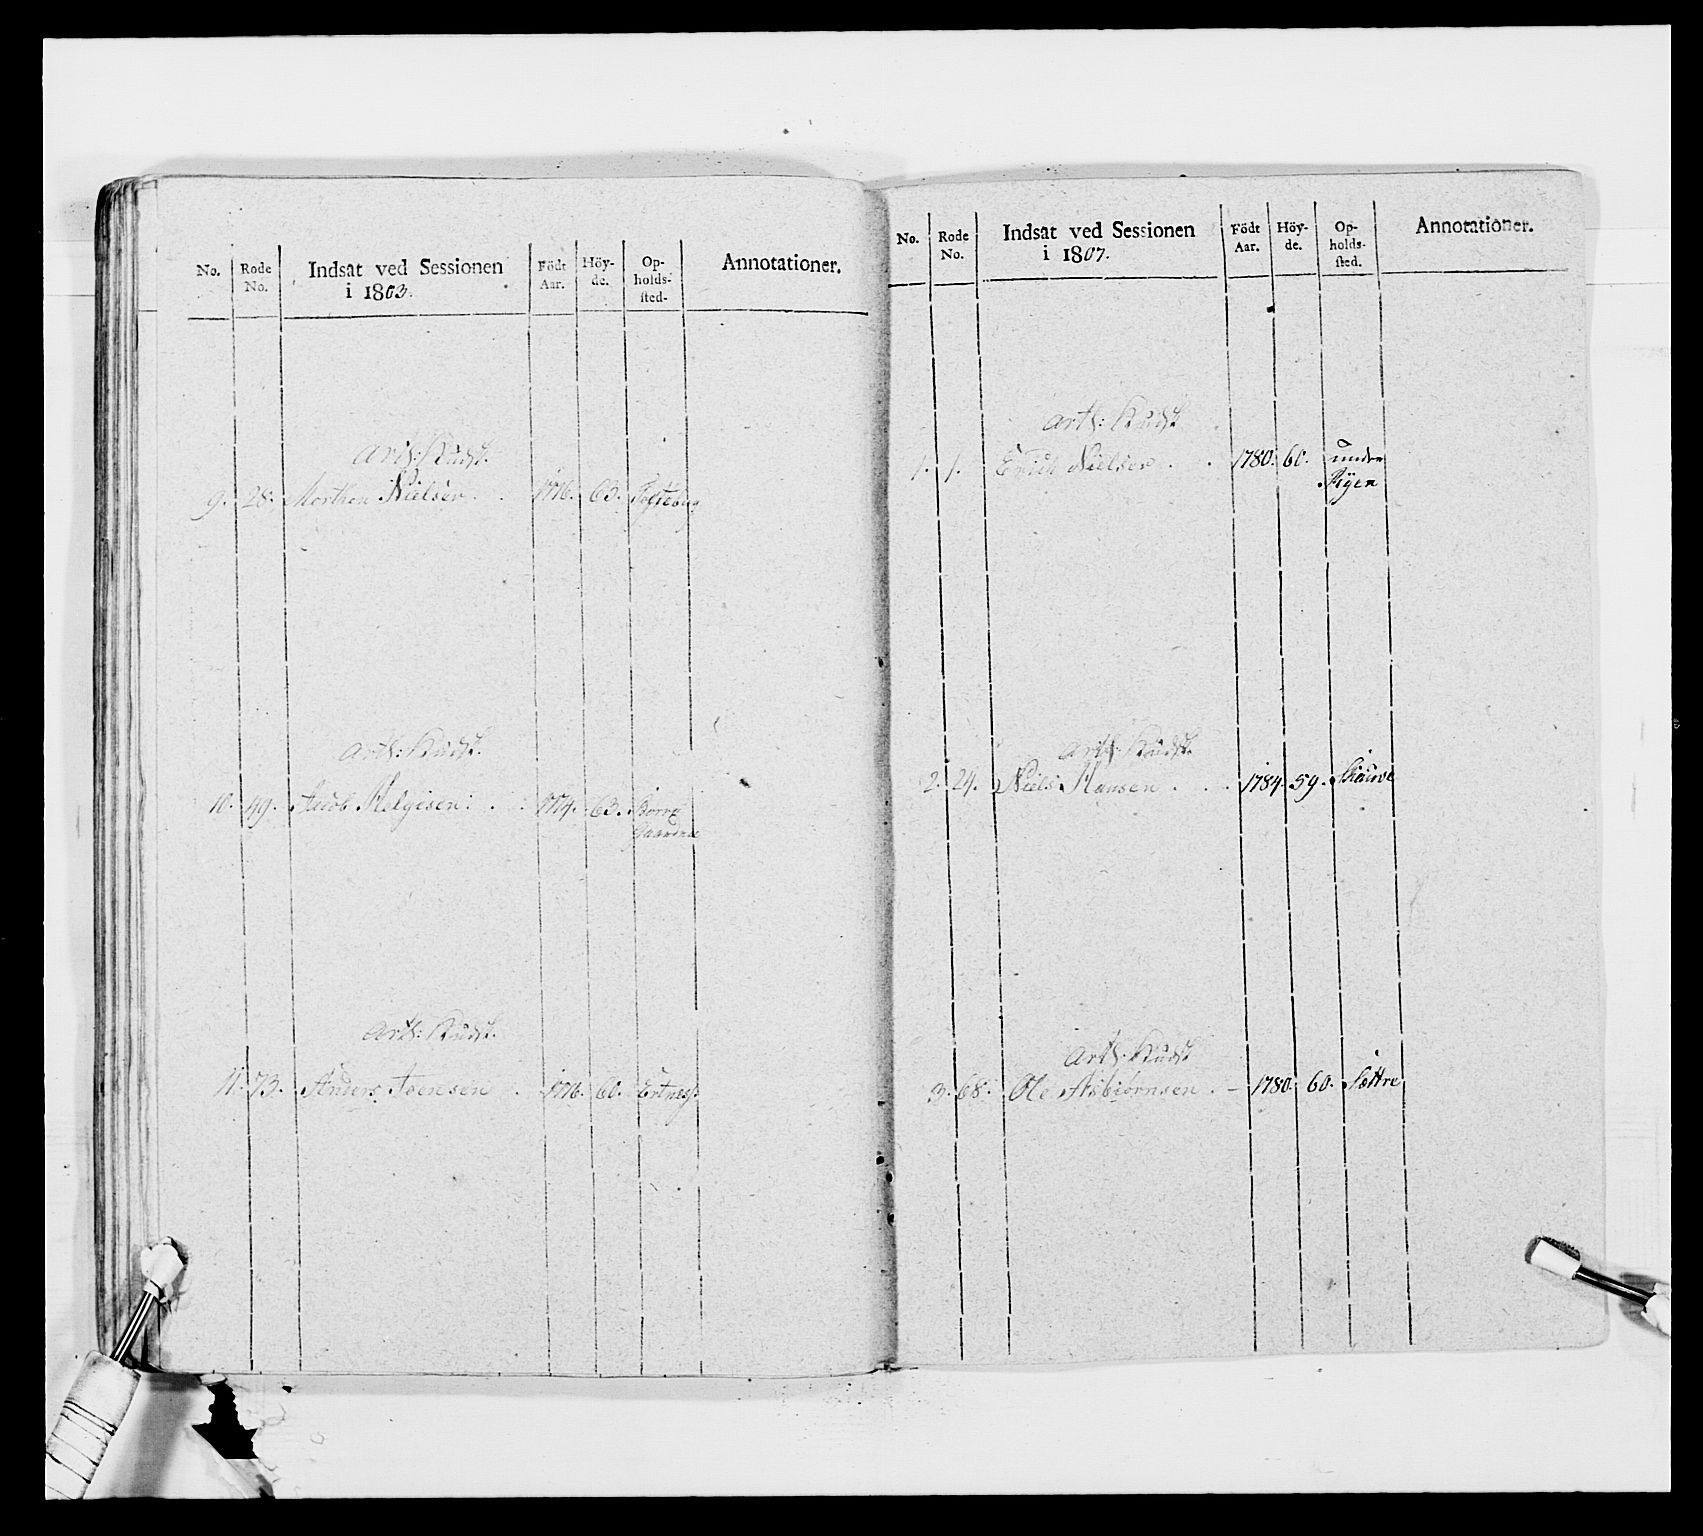 No. Rode No. Indsat ved Sessionen i 1803. Födt Aar. Höy-de. Op-holds-sted. Annotationer.
Art: Kudsk.
9. 28. Morthen Nielsen. 1776. 63.
Art: Kudsk.
10. 49. Jacob Helgesen. 1774. 63.
Art: Kudsk.
11. 73. Anders Joensen 1776. 60. Ertnes
No. Rode No. Indsat ved Sessionen i 1807. Födt Aar. Höy-de. Op-holds-sted. Annotationer.
Art: Kudsk
1. 1. Erich Nielsen. 1780. 60. under
Ryen
Art: Kudsk.
2. 24. Niels Hansen. 1784. 59.
Art: Kudsk
3. 68. Ole Asbiørnsen. – 1780. 60. Sættre